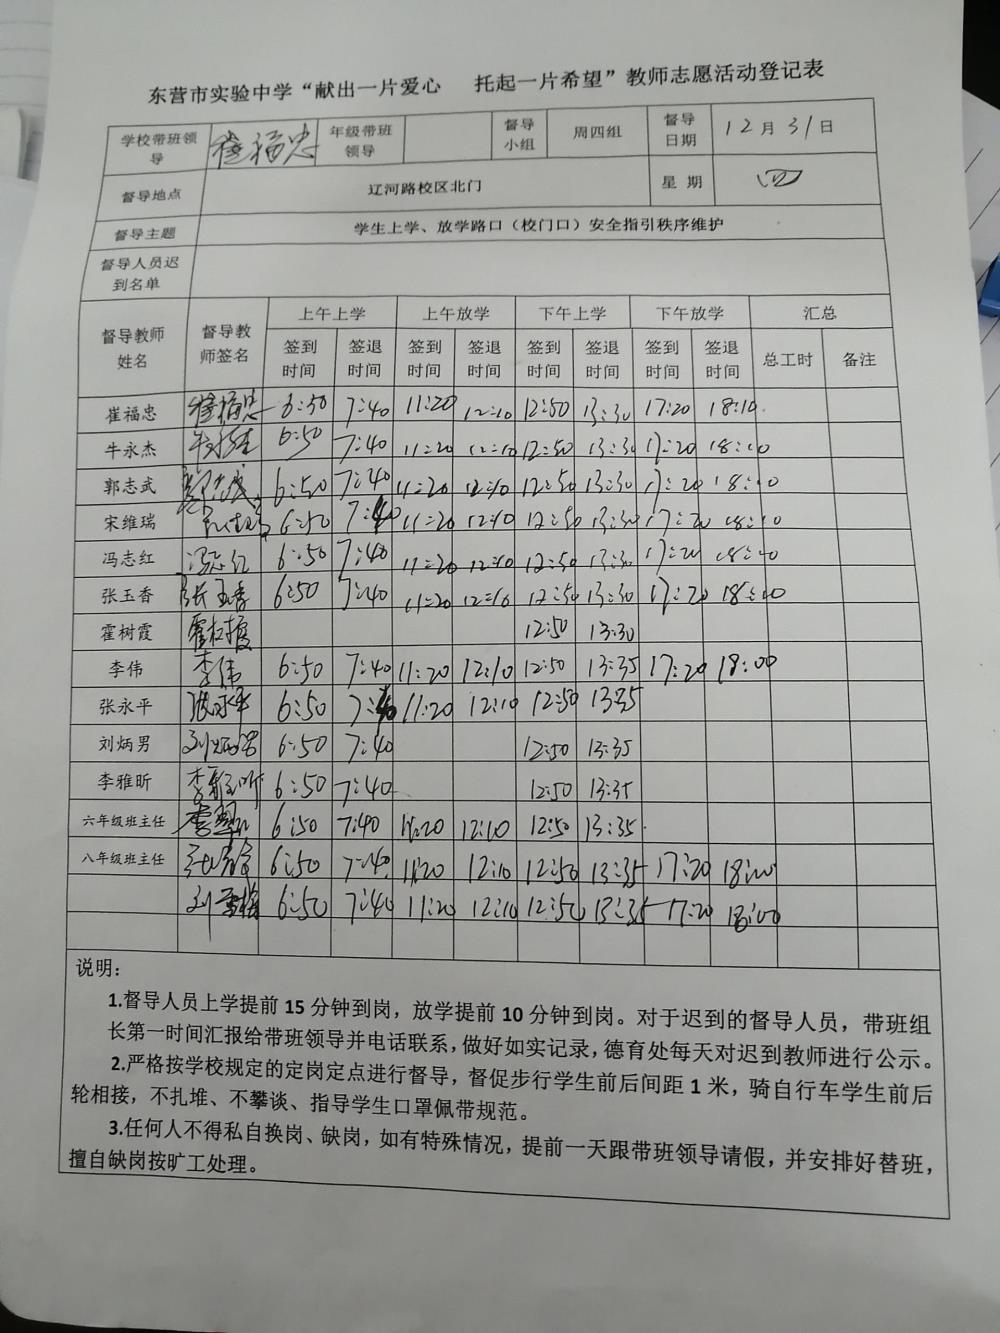 东营市实验中学“献出一片爱心 托起一片希望”教师志愿活动登记表
学校带班领导 崔福忠 年级带班领导 督导小组 周四组 督导日期 12月31日
督导地点 辽河路校区北门 星 期 四
督导主题 学生上学、放学路口（校门口）安全指引秩序维护
督导人员迟到名单
督导教师姓名 督导教师签名 上午上学 上午放学 下午上学 下午放学 汇总
签到时间 签退时间 签到时间 签退时间 签到时间 签退时间 签到时间 签退时间 总工时 备注
崔福忠 崔福忠 6:50 7:40 11:20 12:10 12:50 13:30 17:20 18:10
牛永杰 牛永杰 6:50 7:40 11:20 12:10 12:50 13:30 17:20 18:00
郭志武 郭志武 6:50 7:40 11:20 12:10 12:50 13:30 17:20 18:00
宋维瑞 6:50 7:40 11:20 12:10 12:50 13:30 17:20 18:00
冯志红 冯志红 6:50 7:40 11:20 12:10 12:50 13:30 17:20 18:00
张玉香 张玉香 6:50 7:40 11:20 12:10 12:50 13:30 17:20 18:00
霍树霞 霍树霞 12:50 13:30
李伟 李伟 6:50 7:40 11:20 12:10 12:50 13:35 17:20 18:00
张永平 张永平 6:50 7:40 11:20 12:10 12:50 13:35
刘炳男 刘炳男 6:50 7:40 12:50 13:35
李雅昕 李雅昕 6:50 7:40 12:50 13:35
六年级班主任 6:50 7:40 11:20 12:10 12:50 13:35
八年级班主任 6:50 7:40 11:20 12:10 12:50 13:35 17:20 18:00
6:50 7:40 11:20 12:10 12:50 13:35 17:20 18:00
说明：
1.督导人员上学提前 15 分钟到岗，放学提前 10 分钟到岗。对于迟到的督导人员，带班组
长第一时间汇报给带班领导并电话联系，做好如实记录，德育处每天对迟到教师进行公示。
2.严格按学校规定的定岗定点进行督导，督促步行学生前后间距 1 米，骑自行车学生前后
轮相接，不扎堆、不攀谈、指导学生口罩佩带规范。
3.任何人不得私自换岗、缺岗，如有特殊情况，提前一天跟带班领导请假，并安排好替班，
擅自缺岗按旷工处理。